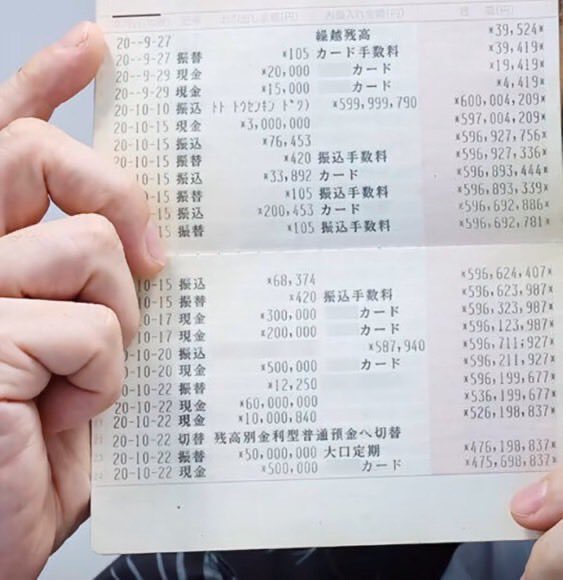 お引出し金額(円) お預入れ金額(円) 残 高(円)
20--9-27 繰越残高 *39,524*
20--9-27 振替 *105 カード手数料 *39,419*
20--9-29 現金 *20,000 カード *19,419*
20--9-29 現金 *15,000 カード *4,419*
20-10-10 振込 トト トウセンキン *599,999,790 *600,004,209*
20-10-15 現金 *3,000,000 *597,004,209*
20-10-15 振込 *76,453 *596,927,756*
0-10-15 振替 *420 振込手数料 *596,927,336*
-10-15 振込 *33,892 カード *596,893,444*
-15 振替 *105 振込手数料 *596,893,339*
-15 振込 *200,453 カード *596,692,886*
15 振替 *105 振込手数料 *596,692,781*
0-10-15 振込 *68,374 *596,624,407*
0-10-15 振替 *420 振込手数料 *596,623,987*
0-10-17 現金 *300,000 カード *596,323,987*
0-10-17 現金 *200,000 カード *596,123,987*
0-10-20 振込 *587,940 *596,711,927*
20-10-20 現金 *500,000 カード *596,211,927*
20-10-22 振替 *12,250 *596,199,677*
20-10-22 現金 *60,000,000 *536,199,677*
20-10-22 現金 *10,000,840 *526,198,837*
20-10-22 切替 残高別金利型普通預金へ切替
20-10-22 振替 *50,000,000 大口定期 *476,198,837*
20-10-22 現金 *500,000 カード *475,698,837*